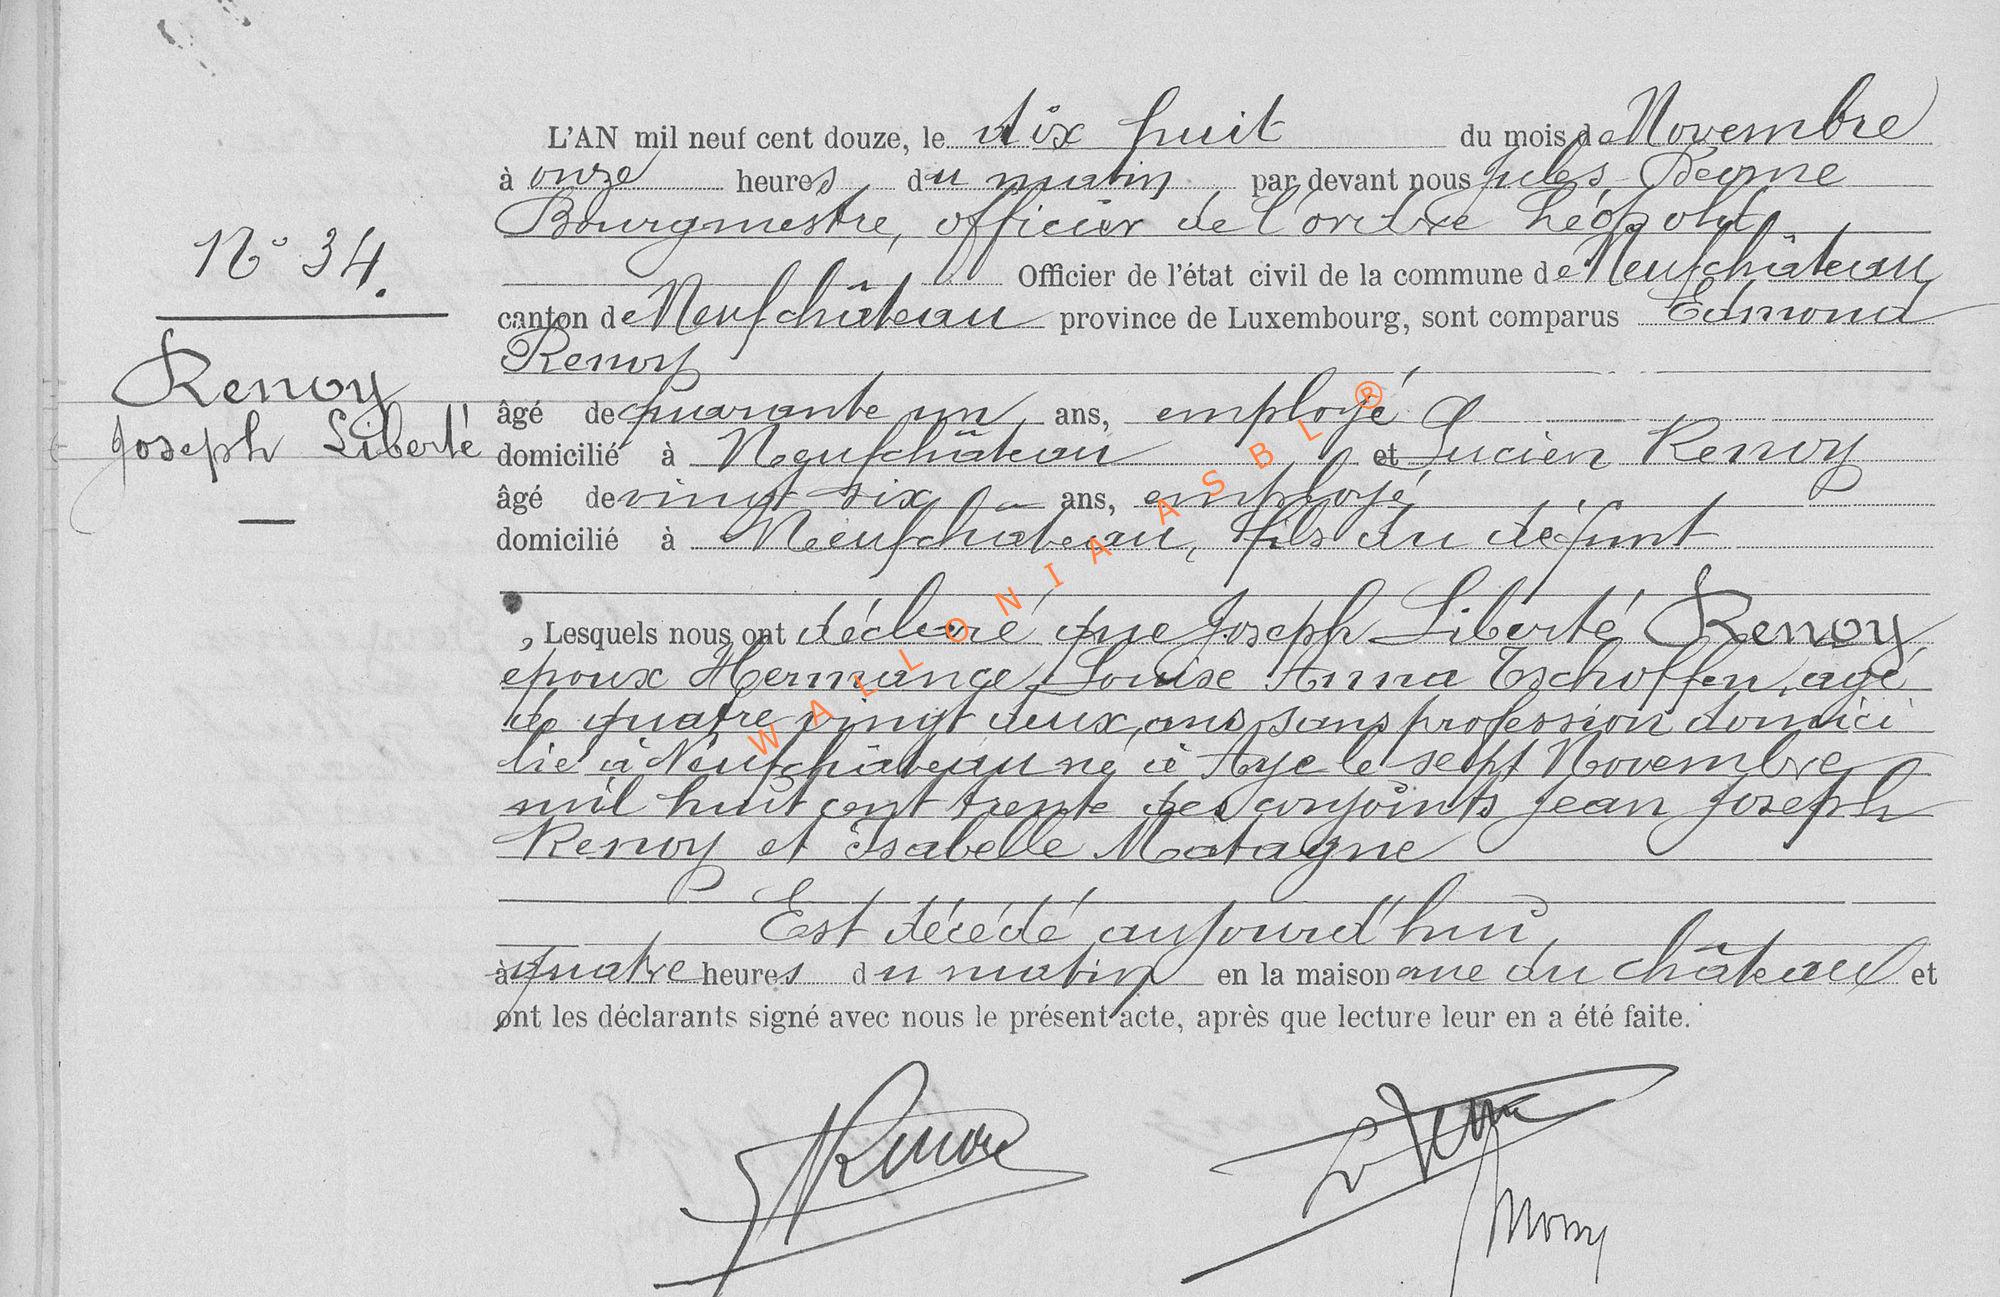 L'AN mil neuf cent douze, le dix huit du mois de Novembre
à onze heures du matin par devant nous Jules
Bourgmestre, officier de l'ordre Léopold,
Officier de l'état civil de la commune de Neufchâteau
canton de Neufchâteau province de Luxembourg, sont comparus Edmond
Renoy
N° 34.
Renoy
Joseph Liberté
âgé de quarante un ans, employé
domicilié à Neufchâteau et Lucien Renoy
âgé de vingt six ans, employé
domicilié à Neufchateau, fils du défunt
, Lesquels nous ont déclaré que Joseph Liberté Renoy,
epoux Hermance Louise Anna Tschoffen, agé
de quatre vingt deux ans, sans profession domici
lié à Neufchâteau né à Aye le sept Novembre
mil huit cent trente des conjoints Jean Joseph
Renoy et Isabelle Matagne
Est décédé aujourd'hui,
à quatre heures du matin en la maison rue du château et
ont les déclarants signé avec nous le présent acte, après que lecture leur en a été faite.
Renoy
WALLONIA ASBL ®